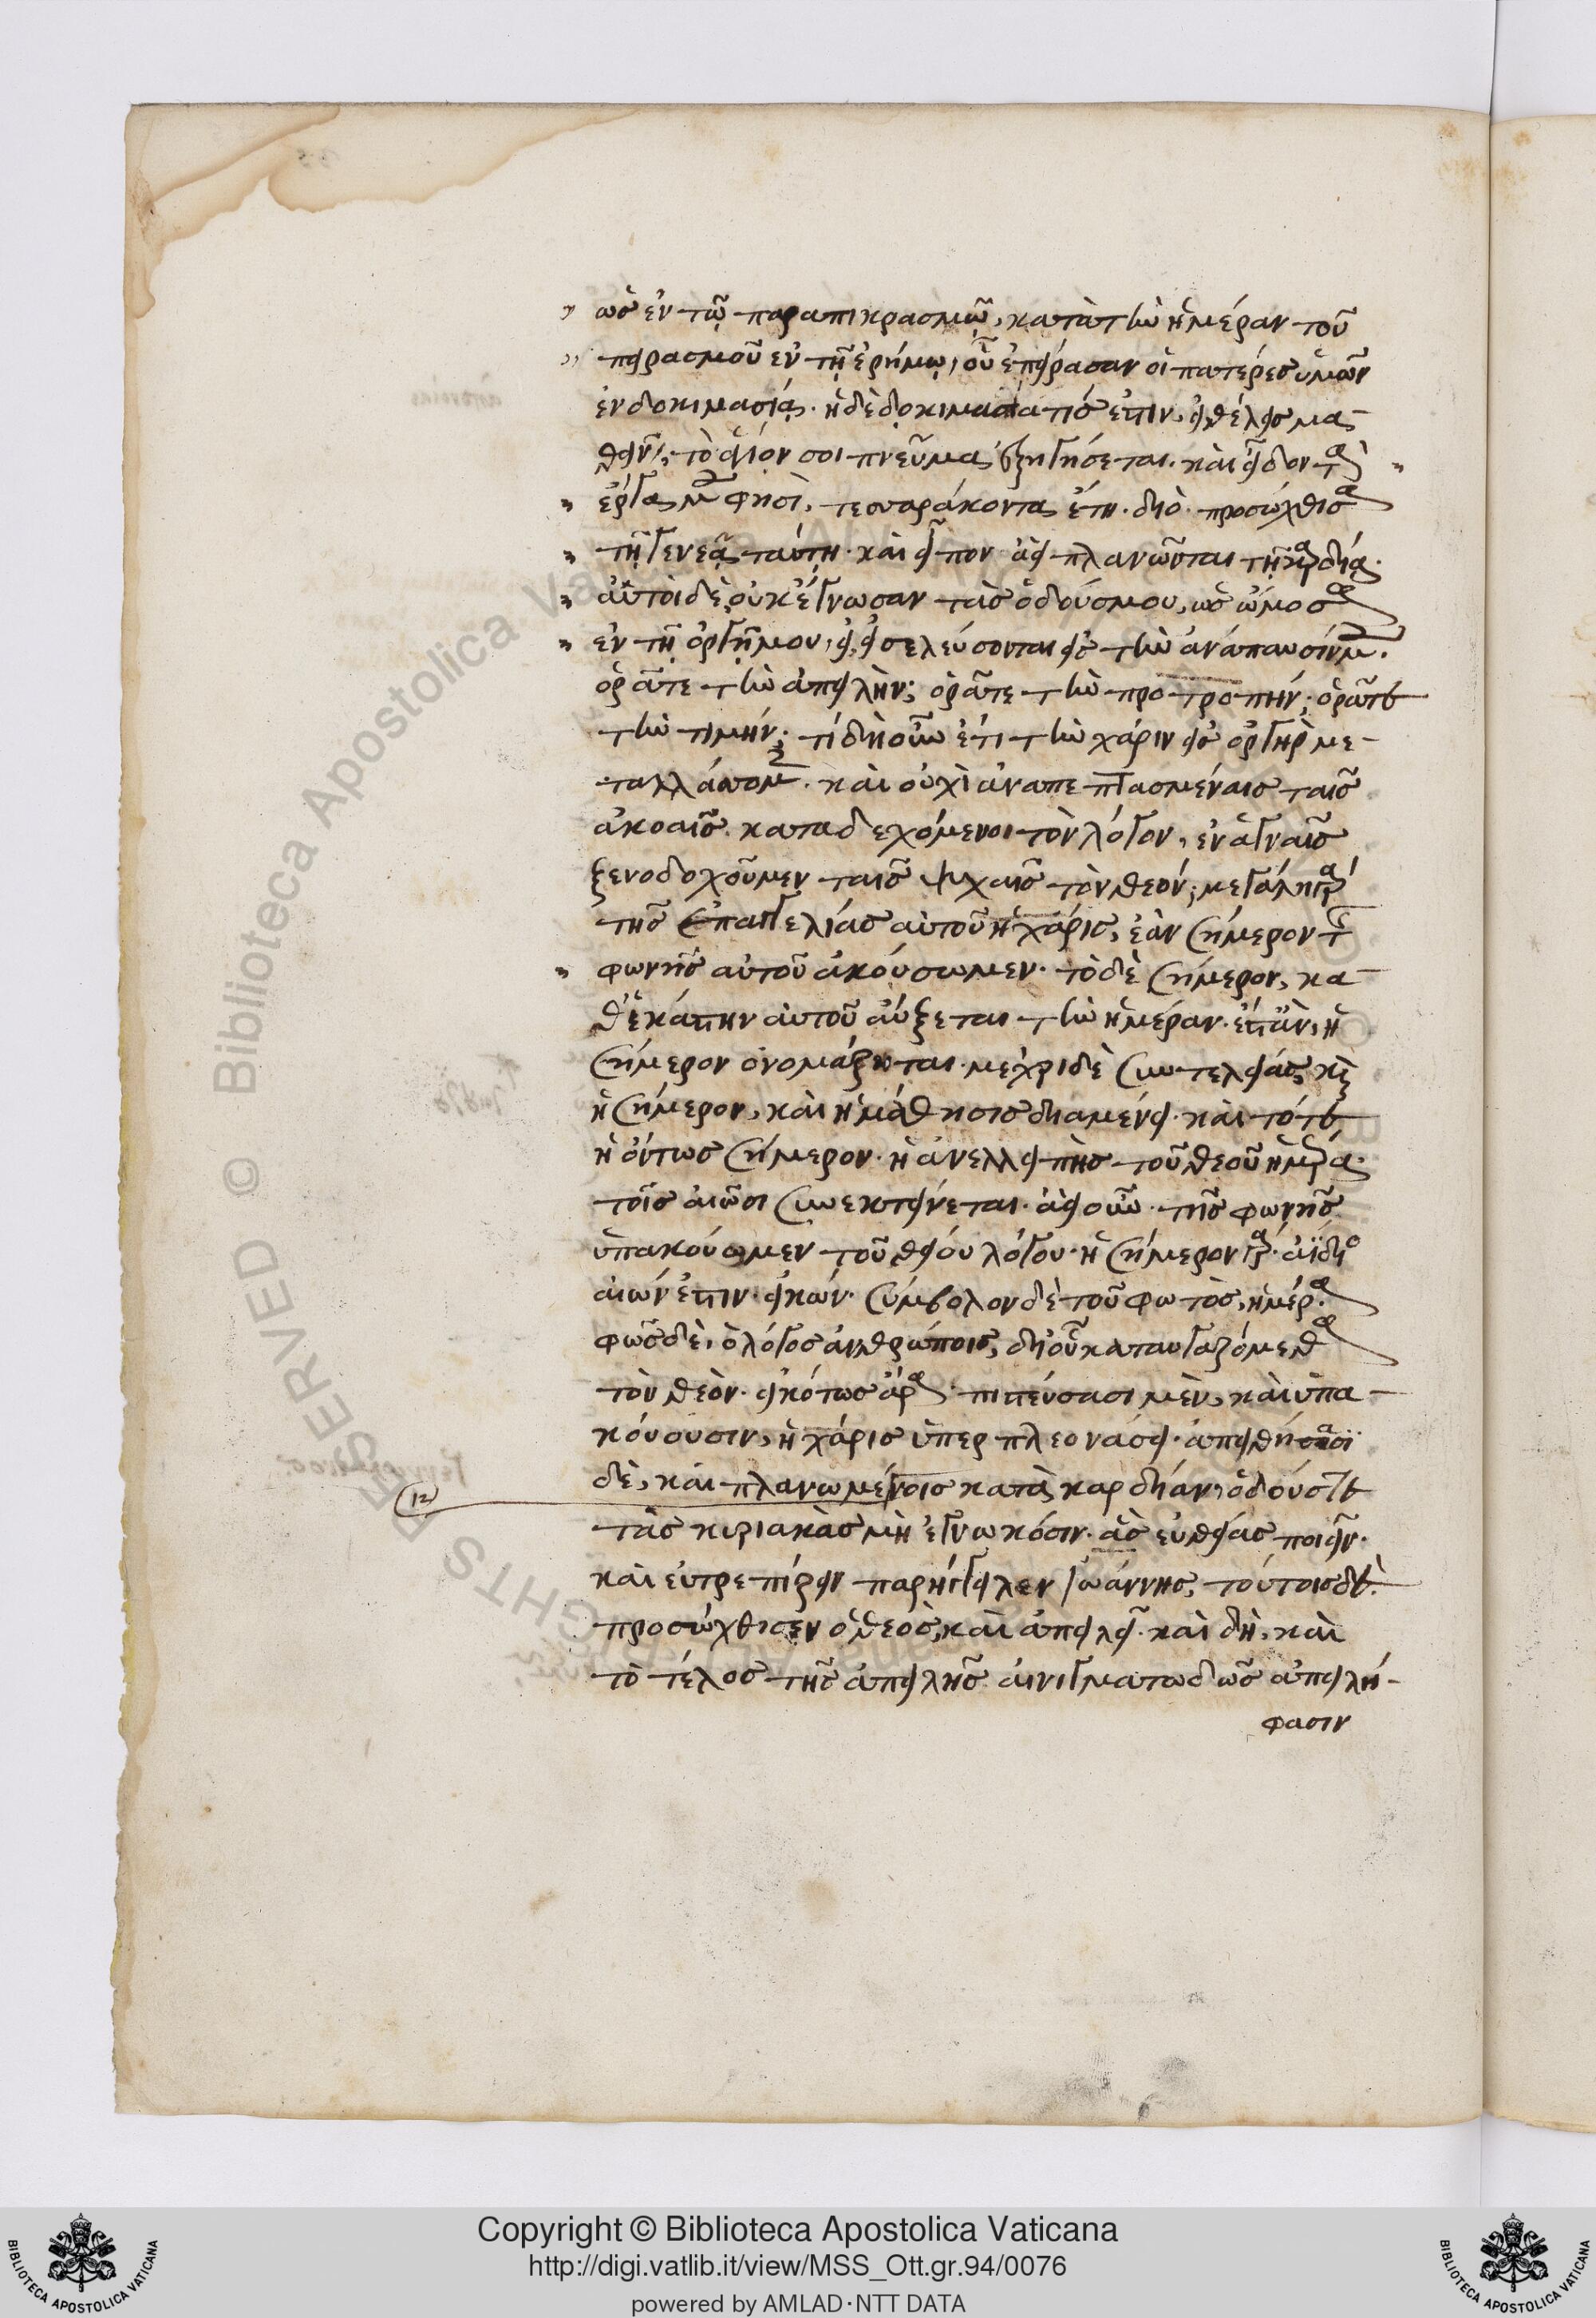 ὡς ἐν τῷ παραπικρασμῷ, κατὰ τὴν ἡμέραν τοῦ
πειρασμοῦ ἐν τῇ ἐρήμῳ, οὗ ἐπείρασαν οἱ πατέρες ὑμῶν
ἐν δοκιμασίᾳ. ἡ δὲ δοκιμασία τίς ἐστιν, εἰ θέλεις μα-
θεῖν, τὸ ἅγιόν σοι πνεῦμα ἐξηγήσεται. καὶ εἶδον τὰ
ἔργα μου φησὶ, τεσσαράκοντα ἔτη. διὸ προσώχθισα
τῇ γενεᾷ ταύτῃ. καὶ εἶπον ἀεὶ πλανῶνται τῇ καρδίᾳ.
αὐτοὶ δὲ οὐκ ἔγνωσαν τὰς ὁδούς μου, ὡς ὤμοσα
ἐν τῇ ὀργῇ μου, εἰ εἰσελεύσονται εἰς τὴν ἀνάπαυσίν μου.
ὁρᾶτε τὴν ἀπειλήν; ὁρᾶτε τὴν προτροπήν; ὁρᾶτε
τὴν τιμήν; τί δὴ οὖν ἔτι τὴν χάριν εἰς ὀργὴν με-
ταλλάσσομεν. καὶ οὐχὶ ἀναπεπτασμέναις ταῖς
ἀκοαῖς καταδεχόμενοι τὸν λόγον, ἐν ἁγναῖς
ξενοδοχοῦμεν ταῖς ψυχαῖς τὸν θεόν; μεγάλη γὰρ
τῆς ἐπαγγελίας αὐτοῦ ἡ χάρις, ἐὰν σήμερον τῆς
φωνῆς αὐτοῦ ἀκούσωμεν. τὸ δὲ σήμερον, κα-
θ' ἑκάστην αὐτοῦ αὔξεται τὴν ἡμέραν. ἔστ' ἂν, ἡ
σήμερον ὀνομάζηται. μέχρι δὲ συντελείας, καὶ
ἡ σήμερον, καὶ ἡ μάθησις διαμένει. καὶ τότε
ἡ ὄντως σήμερον. ἡ ἀνελλειπὴς τοῦ θεοῦ ἡμέρα.
τοῖς αἰῶσι συνεκτείνεται. ἀεὶ οὖν τῆς φωνῆς
ὑπακούωμεν τοῦ θείου λόγου. ἡ σήμερον γὰρ ἀϊδίου
αἰών ἐστιν εἰκών. σύμβολον δὲ τοῦ φωτὸς, ἡμέρα.
φῶς δὲ, ὁ λόγος ἀνθρώποις, δι' οὗ καταυγαζόμεθα
τὸν θεόν. εἰκότως ἄρα πιστεύσασι μὲν, καὶ ὑπα-
κούουσιν, ἡ χάρις ὑπερπλεονάσει. ἀπειθήσασι
δὲ, καὶ πλανωμένοις κατὰ καρδίαν, ὁδούς τε
τὰς κυριακὰς μὴ ἐγνωκόσιν. ἃς εὐθείας ποιεῖν.
καὶ εὐτρεπίζειν παρήγγειλεν Ἰωάννης, τούτοις δὲ
προσώχθισεν ὁ θεὸς, καὶ ἀπειλεῖ. καὶ δὴ, καὶ
(12)
τὸ τέλος τῆς ἀπειλῆς αἰνιγματωδῶς ἀπειλή-
φασιν
Copyright © Biblioteca Apostolica Vaticana
http://digi.vatlib.it/view/MSS_Ott.gr.94/0076
powered by AMLAD·NTT DATA